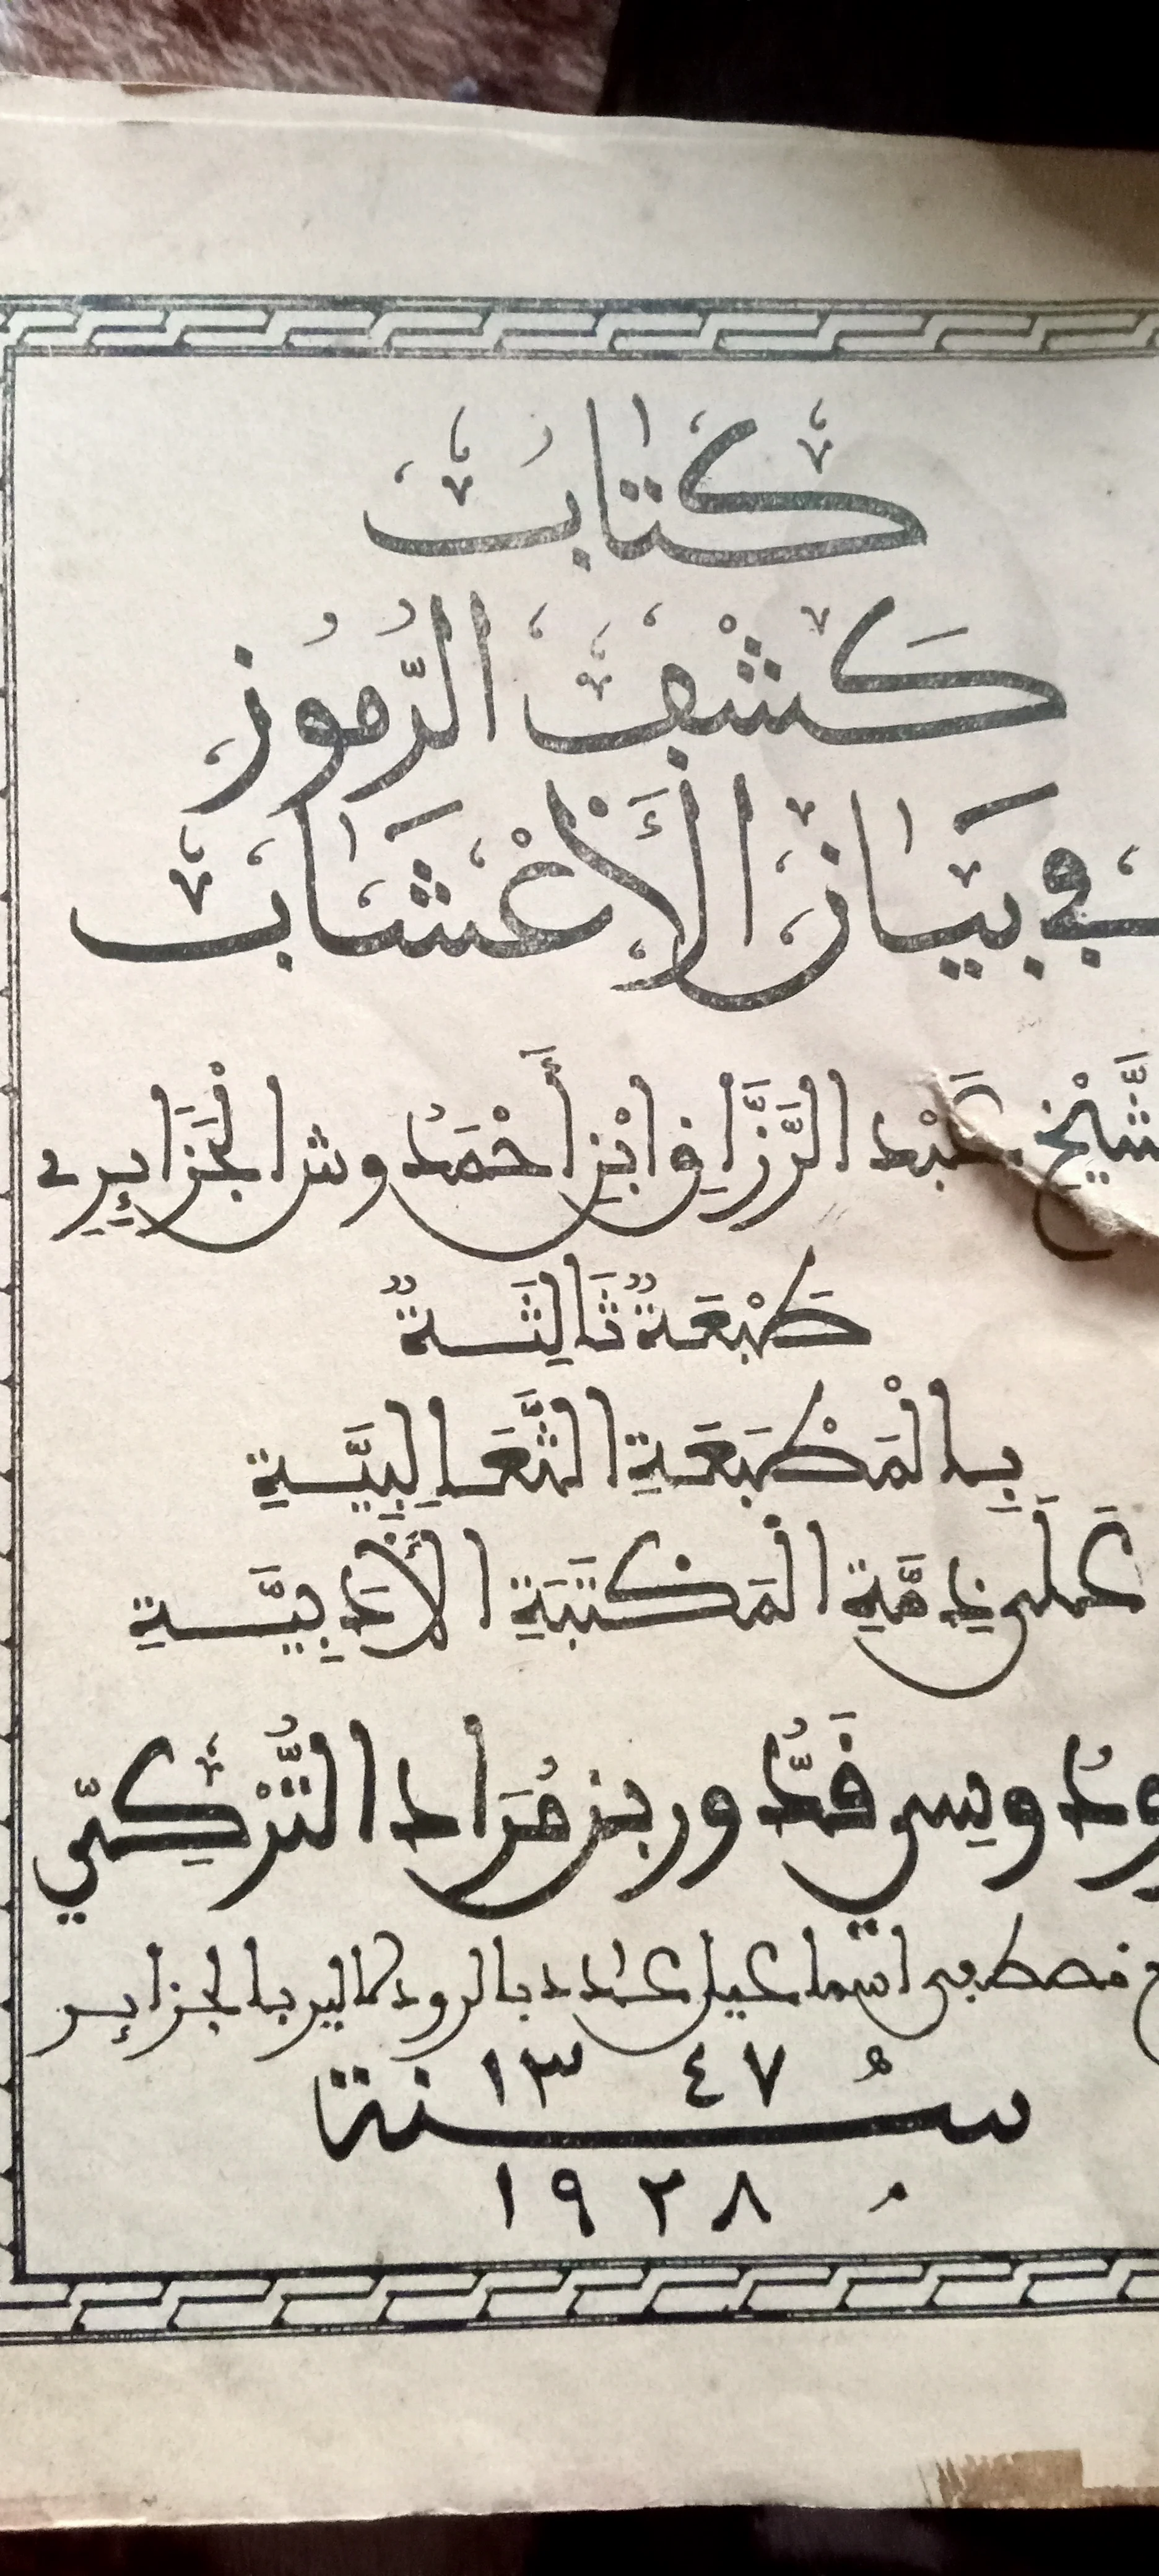 كتاب
كَشْف الرُّمُوز
في بيَان الأَعْشَاب
شَّيْخ عَبْد الرَّزَّاق ابْن أَحْمَدُوش الْجَزَايِرِي
طَبْعَةٌ ثَالِثَةٌ
بِالْمَطْبَعَةِ الثَّعَالِبِيَّةِ
عَلَى ذِمَّةِ الْمَكْتَبَةِ الأَدَبِيَّةِ
ودُ وسِي قَدُّور بن مُرَاد التُّرْكِي
مصطفى اسماعيل عـدد بالرود كمالير بالجزاير
١٣٤٧
سنة
١٩٢٨